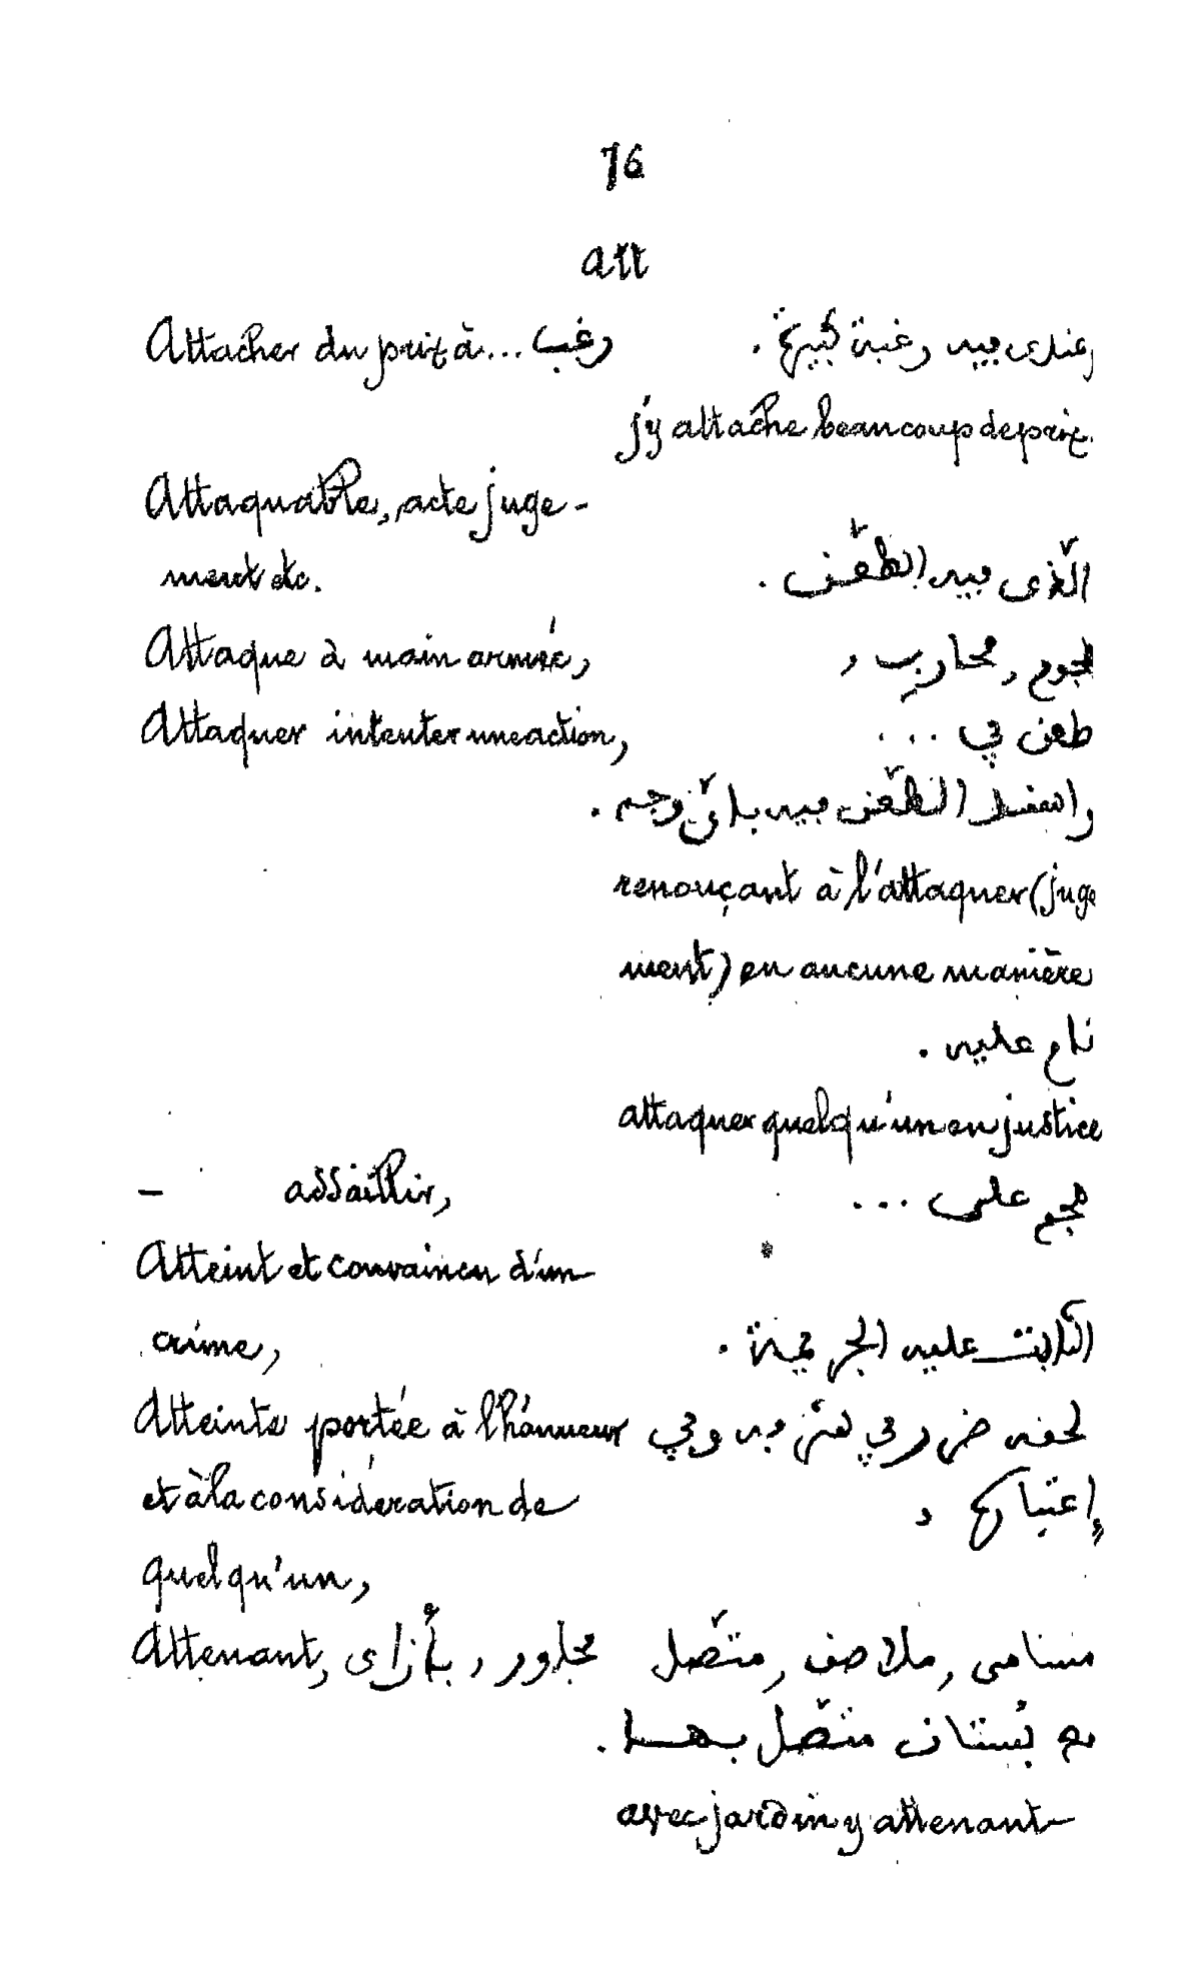 76
att
Attacher du prix à... رغب
وعندى فيه رغبة كبيرة .
j'y attache beaucoup de prix.
Attaquable, acte juge-
ment etc.
الّذى فيه الطّعن .
Attaque à main armée,
هجوم , محارب ,
Attaquer intenter une action,
طعن في ...
الطّعن فيه بأىّ وجه .
renonçant à l'attaquer (juge
ment) en aucune manière
عليه .
attaquer quelqu'un en justice
— assaillir,
هجم على ...
Atteint et convaincu d'un
crime,
الثّابت عليه الجريمة .
Atteinte portée à l'honneur
لحقه ضرر في وفي
et à la considération de
إعتباره ,
quelqu'un,
Attenant, مجاور , بأزاى
مسامى , ملاصق , متّصل
مع بُستان متّصل بهـا .
avec jardin y attenant